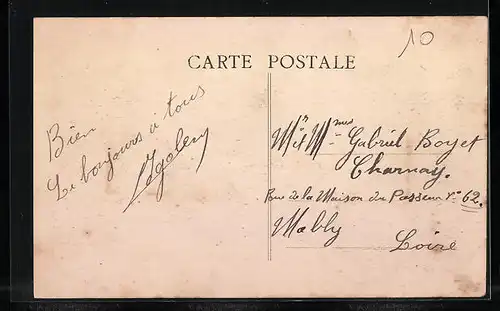 10
CARTE POSTALE
Bien
Le bonjours a tous
Mr et Mmes Gabriel Boyet
Charnay.
Rue de la Maison du Passeur No 62.
Mably
Loire